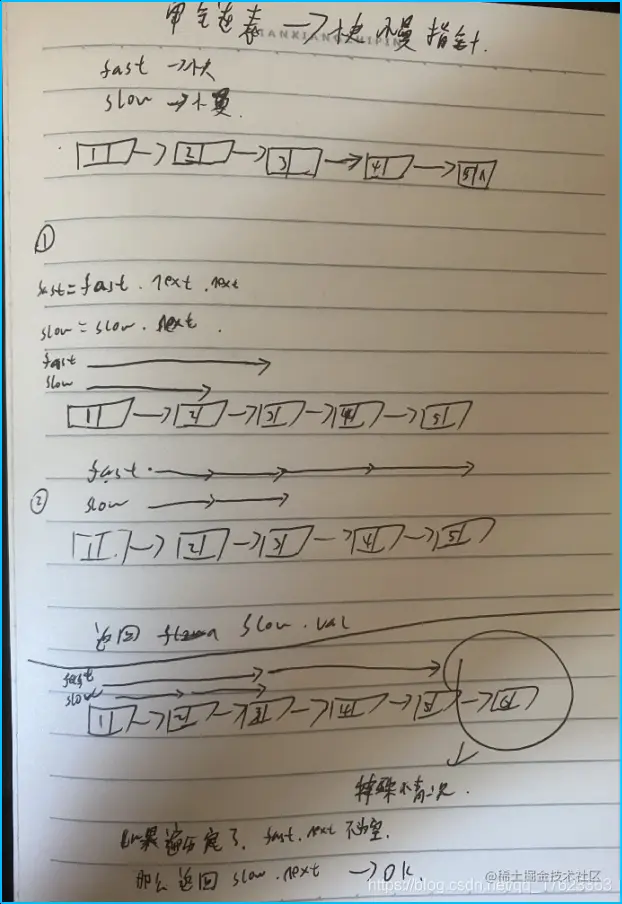 单链表 —> 快慢指针
fast —> 快
slow —> 慢
1 —> 2 —> 3 —> 4 —> 5 ∧
①
fast = fast . next . next
slow = slow . next .
fast
slow
1 —> 2 —> 3 —> 4 —> 5
fast
② slow
1 —> 2 —> 3 —> 4 —> 5
返回 slow . val
fast
slow
1 —> 2 —> 3 —> 4 —> 5 —> 6
特殊情况.
如果遍历完了, fast . next 不为空.
那么返回 slow . next —> OK.
@稀土掘金技术社区